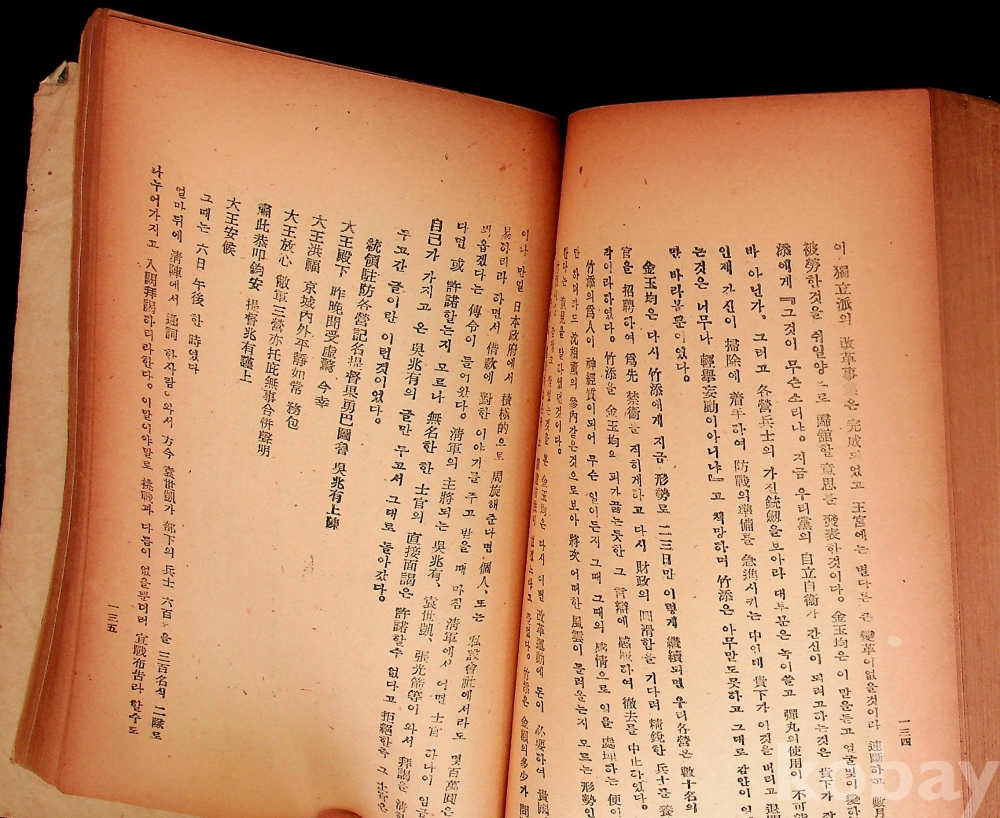 이 獨立派의 改革事業은 完成되었고 王宮에는 별다른 큰 變革이없을것이라 速斷하고 數月
被勞한것을 쉬일양으로 歸舘한 意思를 發表한것이다。 金玉均은 이 말을듣고 얼굴빛이 變하
添에게 『그것이 무슨소리냐。 지금 우리黨의 自立自衛가 간신이 되려고하는것은 貴下가
바 아닌가。 그러고 各營兵士의 가진銃劒을보아라 대부분은 녹이쓸고 彈丸의使用이 不可能
인제 간신이 掃除에 着手하여 防戰의準備를 急進시키는 中인데 貴下가 이것을 버리고 退
는것은 너무나 輕擧妄動이아니냐』고 책망하며 竹添은 아무말도못하고 그대로 잠안이
만 바라볼뿐이었다。
金玉均은 다시 竹添에게 지금 形勢로 二三日만 이렇게 繼續되면 우리各營은 數十名의
官을 招聘하여 爲先 禁衛를 직히게하고 다시 財政의 圓滑함을 기다려 精銳한 兵士를 養
각이라하였다。 竹添을 金玉均의 피가끓는듯한 그 言辯에 感服하여 撤去를 中止하였다。
竹添의爲人이 神經質이되어 무슨 일이든지 그때 그때의 感情으로 일을 處理하는 便이
만 하더라도 沈相薰의 參內같은것으로보아 將次 어떠한 風雲이 몰려올는지 모르는 形勢인
한다는 意思를 말하였던것이다。
金玉均은 다시 이번 改革運動에 돈이 必要하여 貴國
竹添은 金額의多少가 問
一三四
이나 만일 日本政府에서 積極的으로 周旋해준다면 個人、또는 私設會社에서라도 몇百萬圓은
易하리라 하면서 借款에 對한 이야기를 주고 받을 때 마침 淸軍에서 어떤 士官 하나이 임금
뵈옵겠다는 傳令이 들어왔다。 淸軍의 主將되는 吳兆有、袁世凱、張光前等이 와서 拜謁을 請
다면 或 許諾할는지 모르나 無名한 한 士官의 直接面謁은 許諾할수 없다고 拒絕한즉 그士官은
自己가 가지고 온 吳兆有의 글만 두고서 그대로 돌아갔다。
두고간 글이란 이런것이었다。
統領駐防各營記名提督果勇巴圖魯 吳兆有上陳
大王殿下 昨晩聞受虛驚 今幸
大王洪福 京城內外平靜如常 務包
大王放心 敝軍三營亦托庇無事合併聲明
肅此恭叩鈞安 提督兆有謹上
大王安候
그때는 六日午後 한 時였다
얼마뒤에 淸陣에서 通詞 한사람이와서 方今 袁世凱가 部下의 兵士 六百名을 三百名식 二隊로
나누어가지고 入闕拜謁하리라한다。 이말이야말로 挑戰과 다름이 없을뿐더러 宣戰布告라 할수도
一三五
kobay